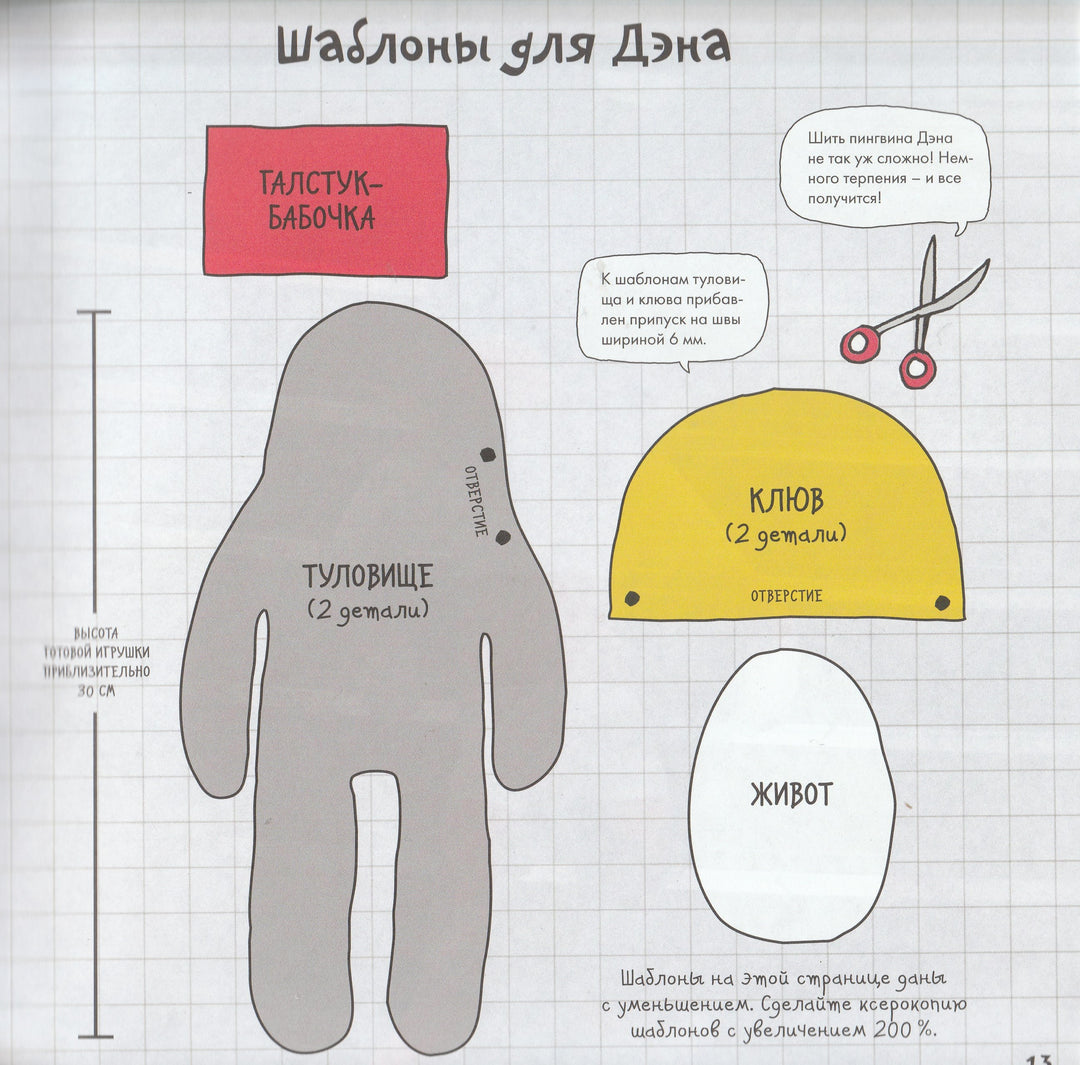 Шаблоны для Дэна
ТАЛСТУК-
БАБОЧКА
Шить пингвина Дэна
не так уж сложно! Нем-
ного терпения – и все
получится!
К шаблонам тулови-
ща и клюва прибав-
лен припуск на швы
шириной 6 мм.
ОТВЕРСТИЕ
КЛЮВ
(2 детали)
ОТВЕРСТИЕ
ТУЛОВИЩЕ
(2 детали)
ВЫСОТА
ГОТОВОЙ ИГРУШКИ
ПРИБЛИЗИТЕЛЬНО
30 СМ
ЖИВОТ
Шаблоны на этой странице даны
с уменьшением. Сделайте ксерокопию
шаблонов с увеличением 200 %.
13